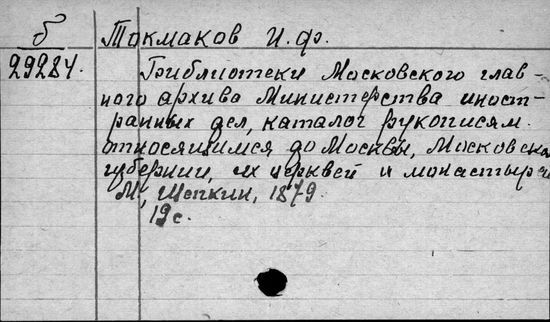 б Токмаков И. Ф.
29284. Библиотеки Московского глав-
ного архива Министерства иност-
ранных дел, каталог рукописям
относящимся до Москвы, Московско
губернии, их церквей и монастыре
М, Щепкин, 1879.
19 с.